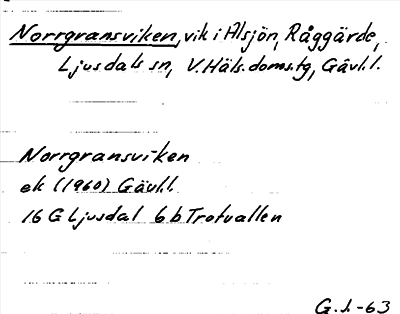 Norrgransviken, vik i Alsjön, Råggärde,
Ljusdals sn, V. Häls. doms.tg, Gävl. l.
Norrgransviken
ek (1960) Gävl.l.
16 G Ljusdal 6 b Trotvallen
G. J. -63